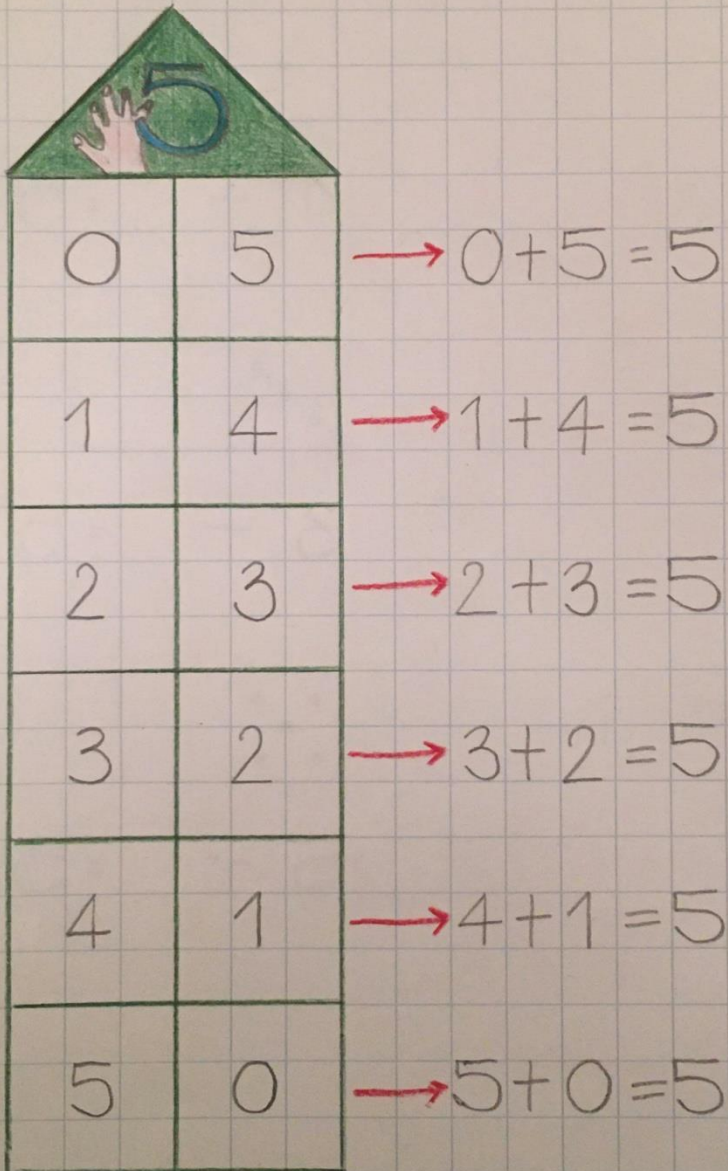 5
0 5 → 0+5=5
1 4 → 1+4=5
2 3 → 2+3=5
3 2 → 3+2=5
4 1 → 4+1=5
5 0 → 5+0=5